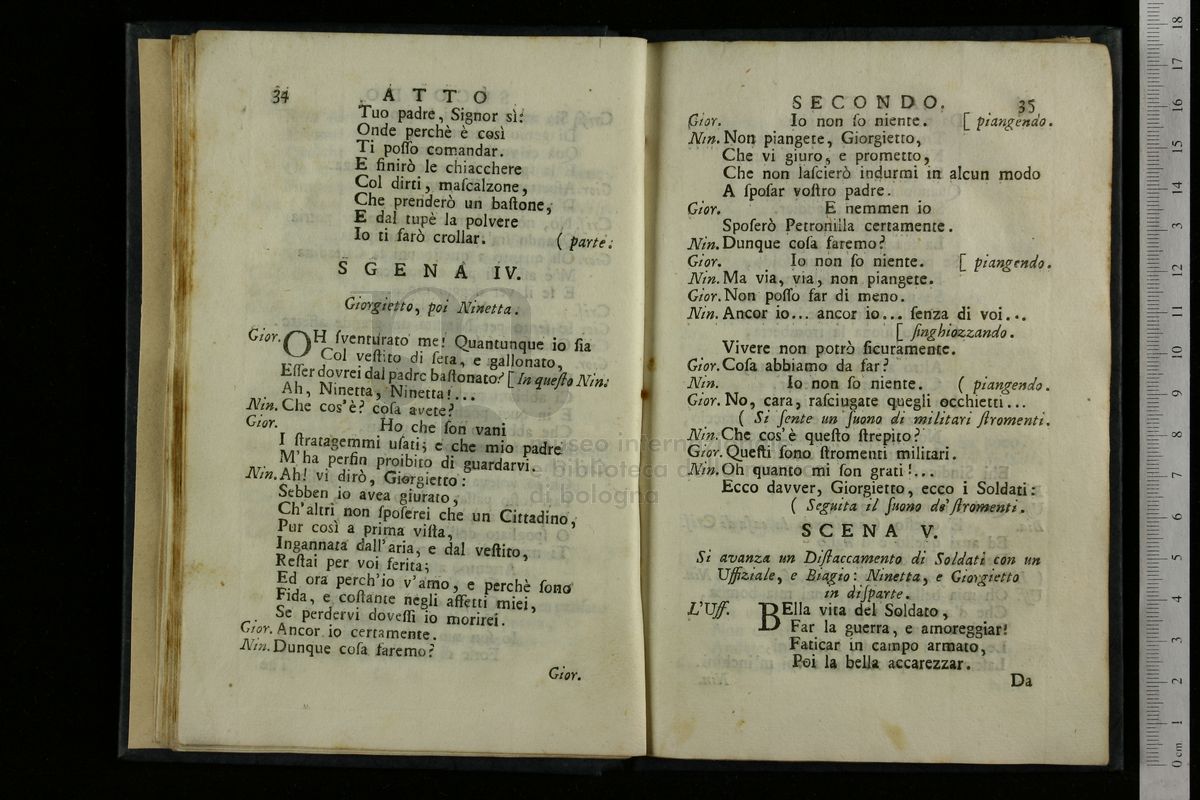 34
ATTO
Tuo padre, Signor sì:
Onde perchè è così
Ti poſſo comandar.
E finirò le chiacchere
Col dirti, maſcalzone,
Che prenderò un baſtone,
E dal tupè la polvere
Io ti farò crollar. ( parte.
SGENA IV.
Giorgietto, poi Ninetta.
Gior. OH ſventurato me! Quantunque io ſia
Col veſtito di ſeta, e gallonato,
Eſſer dovrei dal padre baſtonato? [ In queſto Nin:
Ah, Ninetta, Ninetta!...
Nin. Che cos'è? coſa avete?
Gior. Ho che ſon vani
I ſtratagemmi uſati; e che mio padre
M'ha perfin proibito di guardarvi.
Nin. Ah! vi dirò, Giorgietto:
Sebben io avea giurato,
Ch'altri non ſpoſerei che un Cittadino,
Pur così a prima viſta,
Ingannata dall'aria, e dal veſtito,
Reſtai per voi ferita;
Ed ora perch'io v'amo, e perchè ſono
Fida, e coſtante negli affetti miei,
Se perdervi doveſſi io morirei.
Gior. Ancor io certamente.
Nin. Dunque coſa faremo?
Gior.
SECONDO. 35
Gior. Io non ſo niente. [ piangendo.
Nin. Non piangete, Giorgietto,
Che vi giuro, e prometto,
Che non laſcierò indurmi in alcun modo
A ſpoſar voſtro padre.
Gior. E nemmen io
Spoſerò Petronilla certamente.
Nin. Dunque coſa faremo?
Gior. Io non ſo niente. [ piangendo.
Nin. Ma via, via, non piangete.
Gior. Non poſſo far di meno.
Nin. Ancor io... ancor io... ſenza di voi...
[ ſinghiozzando.
Vivere non potrò ſicuramente.
Gior. Coſa abbiamo da far?
Nin. Io non ſo niente. ( piangendo.
Gior. No, cara, raſciugate quegli occhietti...
( Si ſente un ſuono di militari ſtromenti.
Nin. Che cos'è queſto ſtrepito?
Gior. Queſti ſono ſtromenti militari.
Nin. Oh quanto mi ſon grati!...
Ecco davver, Giorgietto, ecco i Soldati:
( Seguita il ſuono de' ſtromenti.
SCENA V.
Si avanza un Diſtaccamento di Soldati con un
Uffiziale, e Biagio: Ninetta, e Giorgietto
in diſparte.
L'Uff. BElla vita del Soldato,
Far la guerra, e amoreggiar!
Faticar in campo armato,
Poi la bella accarezzar.
Da